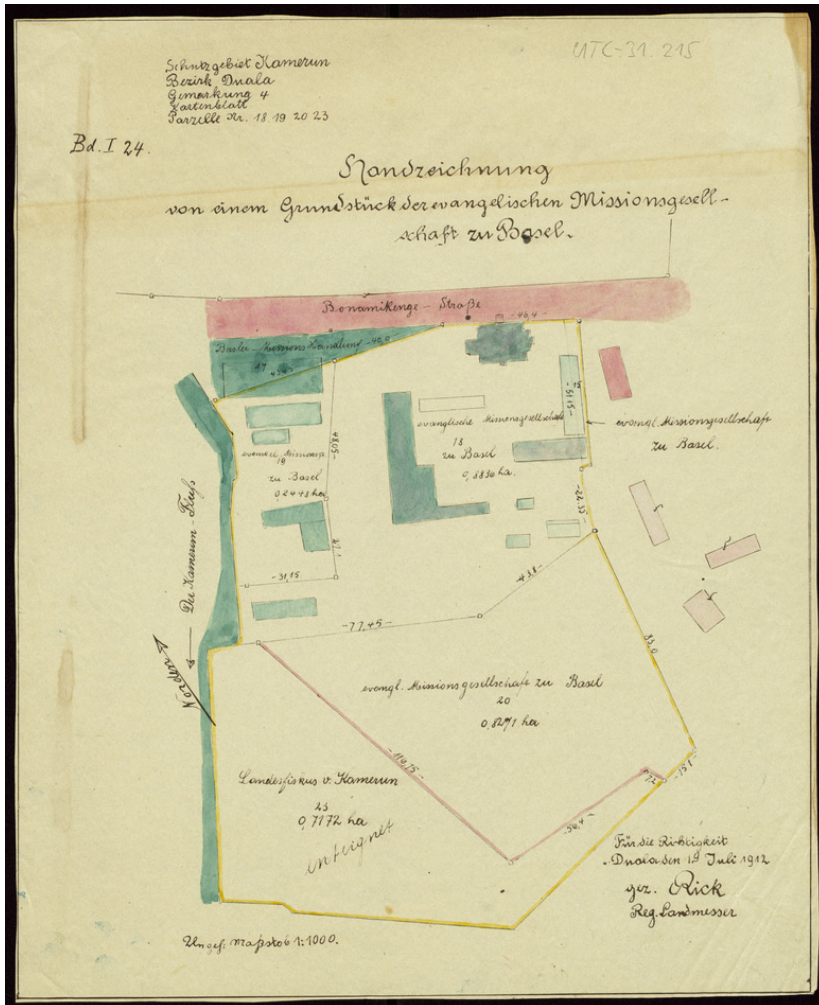 UTC-31.215
Schutzgebiet Kamerun
Bezirk Duala
Gemarkung 4
Kartenblatt
Parzelle Nr. 18 19 20 23
Bd. I 24.
Handzeichnung
von einem Grundstück der evangelischen Missionsgesell-
schaft zu Basel.
Bonamikenge - Straße
-46,4-
Basler - Missions Handlung -40,0
17
evangl. Missionsgesellschaft
zu Basel.
evanglische Missionsgesellschaft
18
zu Basel
-51,15-
48,05-
19
zu Basel
-22,35-
47,1
-31,15-
-43,8-
-77,45-
Der Kamerun - Fluss
Norden
83,0
evangl. Missionsgesellschaft zu Basel
20
0,8271 ha
-116,75-
7,2
-15,1
-56,4-
Landesfiskus v. Kamerun
23
0,7172 ha
enteignet
Für die Richtigkeit
Duala den 19 Juli 1912
gez. Rick
Reg. Landmesser
Ungef. Maßstab 1:1000.